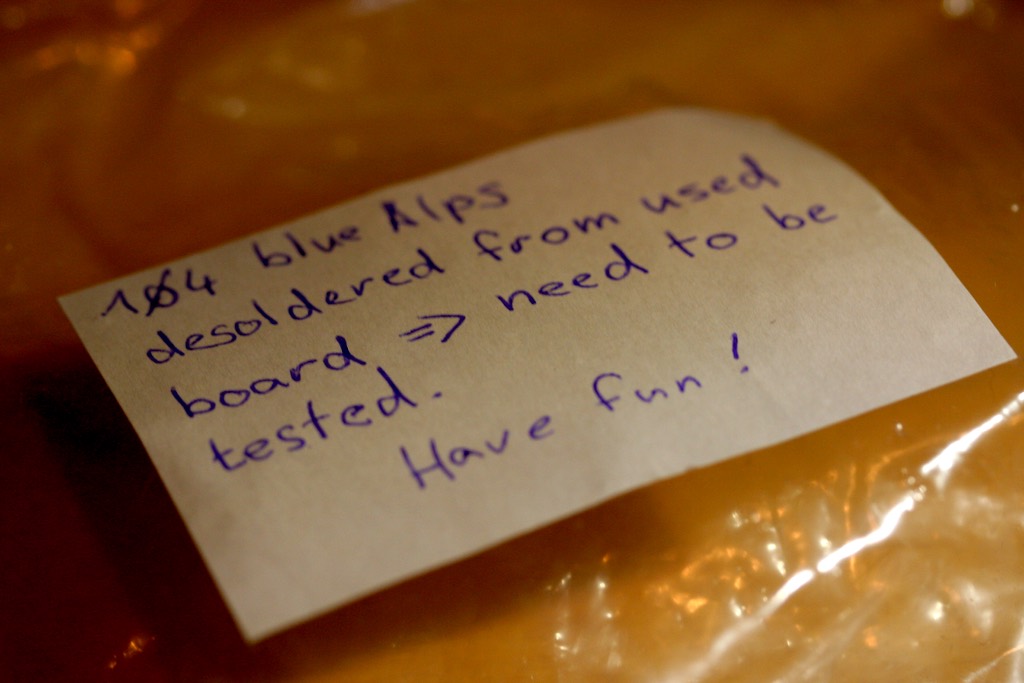 104 blue Alps
desoldered from used
board => need to be
tested.
Have fun!